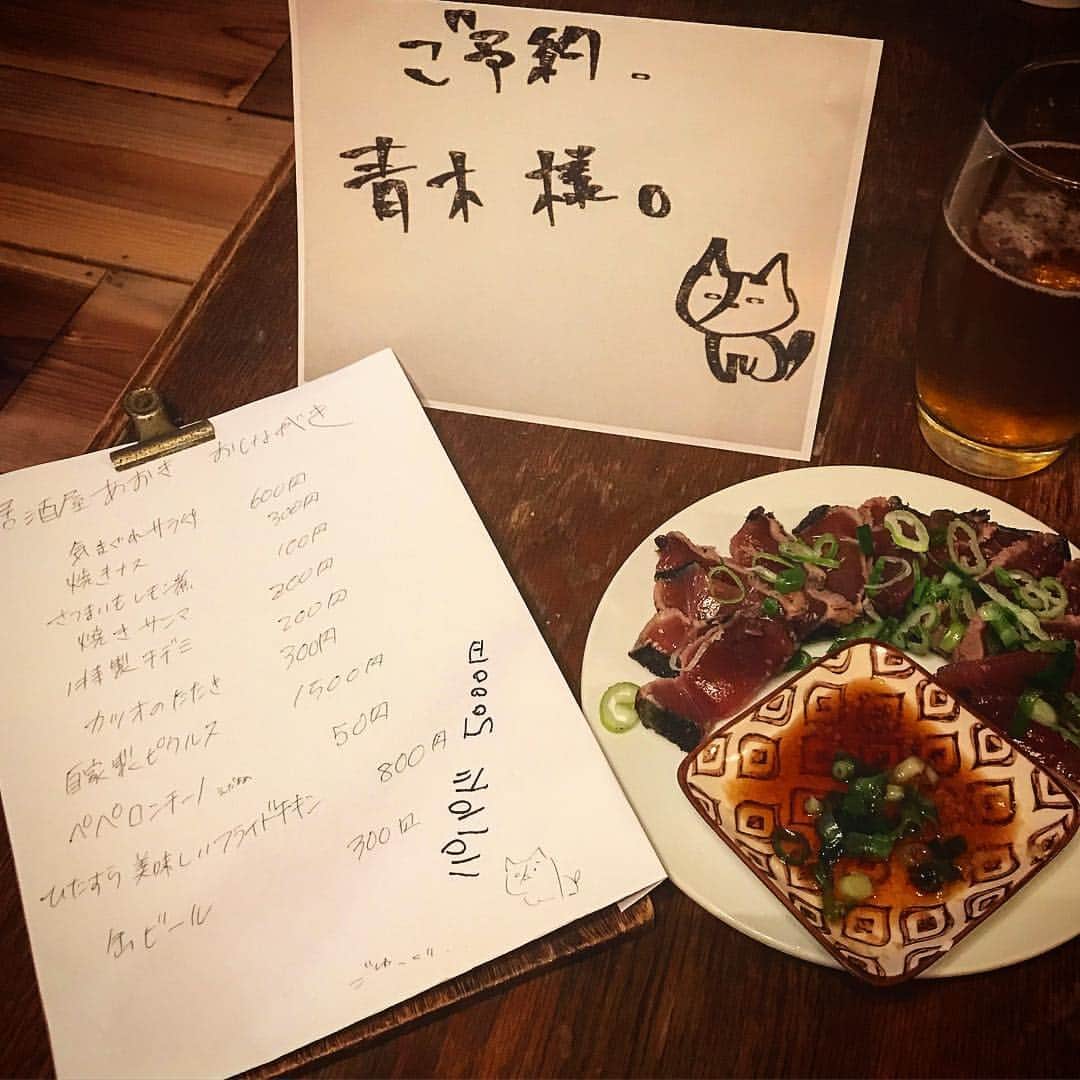 ご予約.
青木様。
居酒屋あおき おしながき
気まぐれサラダ 600円
焼きナス 300円
さつまいもレモン煮 100円
焼きサンマ 200円
特製キデミ 200円
カツオのたたき 300円
自家製ピクルス 1500円
ペペロンチーノ 50円
ひたすら美味しいフライドチキン 800円
缶ビール 300円
5000円